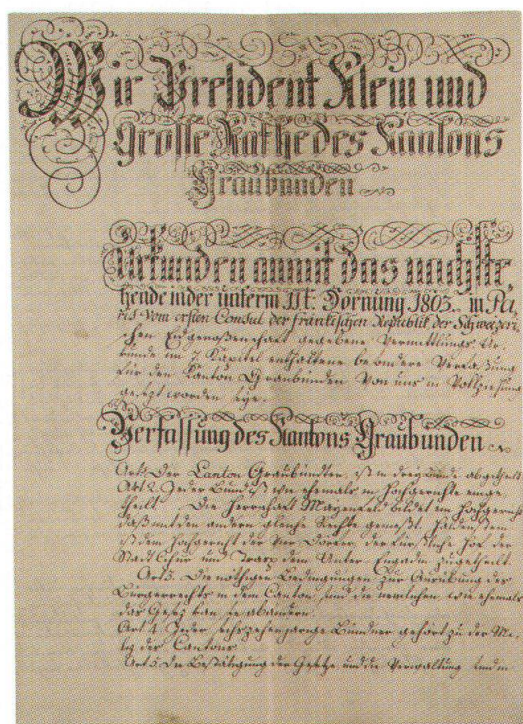 Wir President Klein und
Grosse Räthe des Kantons
Graubünden
Urkunden anmit das nachste-
hende in der unterm 11t: Hornung 1803. in Pa-
ris vom ersten Consul der fränkischen Republik der Schweizeri-
schen Eidgenoßenschaft gegebene Vermittlungs Ur-
kunde im 7 Kapitel enthaltene besondere Verfaßung
für den Kanton Graubünden von uns in Vollziehung
gesezt worden seye.
Verfassung des Kantons Graubünden
Art 1. Der Canton Graubündten, ist in drey Bünde abgetheilt
Art 2. Jeder Bund ist wie ehemals in Hochgerichte einge
theilt. Die Herrschaft Mayenfeld bildet ein Hochgericht
daß mit den andern gleiche Rechte genießt. Haldenstein
ist dem Hochgericht der vier Dörfer, der bischöfliche Hof der
Stadt Chur und Trasp dem Unter Engadin zugetheilt.
Art 3. Die nöthigen Bedingungen zur Ausübung des
Bürgerrechts in dem Canton sind die nemlichen wie ehemals
das Gesez kan sie abändern.
Art 4. Jeder sechszehenjärige Bündner gehört zu der Mi-
liz des Cantons
Art 5. Die Bestätigung der Gesetze und die Verwaltung